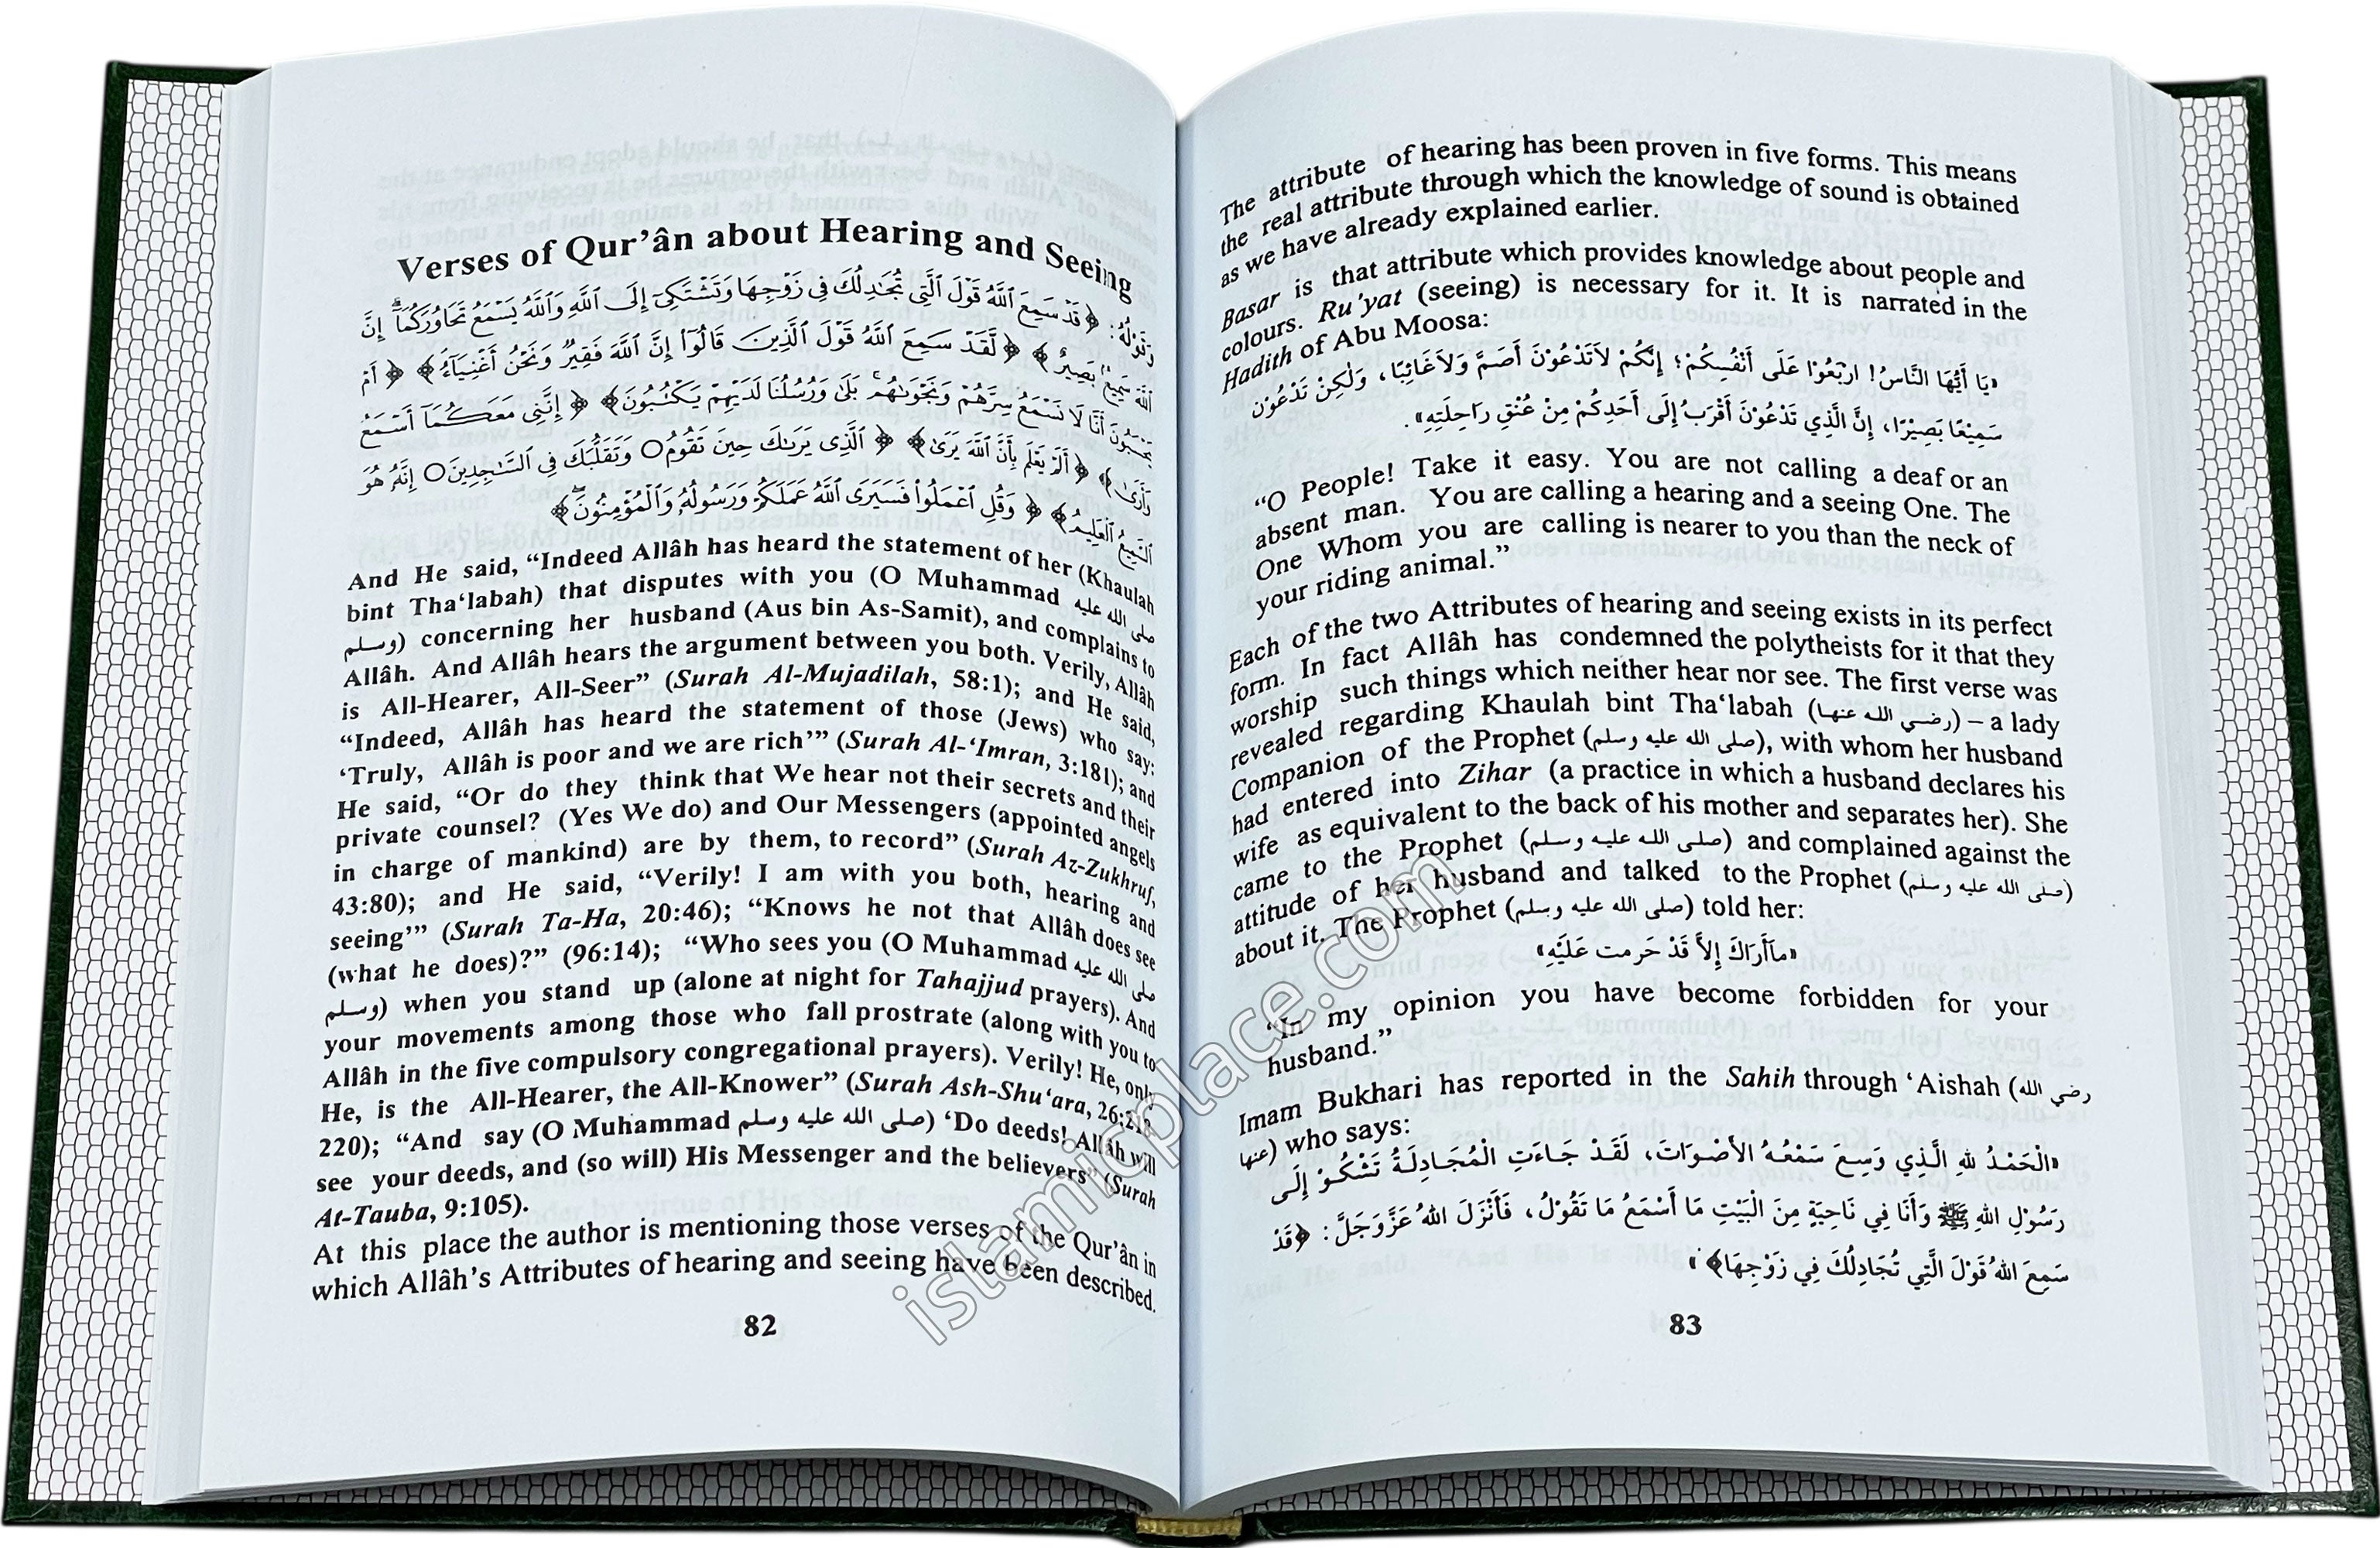 Verses of Qur’ân about Hearing and Seeing
وَقَوْلُهُ: ﴿قَدْ سَمِعَ ٱللَّهُ قَوْلَ ٱلَّتِى تُجَٰدِلُكَ فِى زَوْجِهَا وَتَشْتَكِىٓ إِلَى ٱللَّهِ وَٱللَّهُ يَسْمَعُ تَحَاوُرَكُمَآ ۚ إِنَّ
ٱللَّهَ سَمِيعٌۢ بَصِيرٌ﴾ ﴿لَّقَدْ سَمِعَ ٱللَّهُ قَوْلَ ٱلَّذِينَ قَالُوٓا۟ إِنَّ ٱللَّهَ فَقِيرٌ وَنَحْنُ أَغْنِيَآءُ﴾ ﴿أَمْ
يَحْسَبُونَ أَنَّا لَا نَسْمَعُ سِرَّهُمْ وَنَجْوَىٰهُم ۚ بَلَىٰ وَرُسُلُنَا لَدَيْهِمْ يَكْتُبُونَ﴾ ﴿إِنَّنِى مَعَكُمَآ أَسْمَعُ
وَأَرَىٰ﴾ ﴿أَلَمْ يَعْلَم بِأَنَّ ٱللَّهَ يَرَىٰ﴾ ﴿ٱلَّذِى يَرَىٰكَ حِينَ تَقُومُ ○ وَتَقَلُّبَكَ فِى ٱلسَّٰجِدِينَ ○ إِنَّهُۥ هُوَ
ٱلسَّمِيعُ ٱلْعَلِيمُ﴾ ﴿وَقُلِ ٱعْمَلُوا۟ فَسَيَرَى ٱللَّهُ عَمَلَكُمْ وَرَسُولُهُۥ وَٱلْمُؤْمِنُونَ ۖ﴾
And He said, “Indeed Allâh has heard the statement of her (Khaulah
bint Tha‘labah) that disputes with you (O Muhammad صلى الله عليه
وسلم) concerning her husband (Aus bin As-Samit), and complains to
Allâh. And Allâh hears the argument between you both. Verily, Allâh
is All-Hearer, All-Seer” (Surah Al-Mujadilah, 58:1); and He said,
“Indeed, Allâh has heard the statement of those (Jews) who say:
‘Truly, Allâh is poor and we are rich’” (Surah Al-‘Imran, 3:181); and
He said, “Or do they think that We hear not their secrets and their
private counsel? (Yes We do) and Our Messengers (appointed angels
in charge of mankind) are by them, to record” (Surah Az-Zukhruf,
43:80); and He said, “Verily! I am with you both, hearing and
seeing’” (Surah Ta-Ha, 20:46); “Knows he not that Allâh does see
(what he does)?” (96:14); “Who sees you (O Muhammad صلى الله عليه
وسلم) when you stand up (alone at night for Tahajjud prayers). And
your movements among those who fall prostrate (along with you to
Allâh in the five compulsory congregational prayers). Verily! He, only
He, is the All-Hearer, the All-Knower” (Surah Ash-Shu‘ara, 26:218-
220); “And say (O Muhammad صلى الله عليه وسلم) ‘Do deeds! Allâh will
see your deeds, and (so will) His Messenger and the believers” (Surah
At-Tauba, 9:105).
At this place the author is mentioning those verses of the Qur’ân in
which Allâh’s Attributes of hearing and seeing have been described.
82
The attribute of hearing has been proven in five forms. This means
the real attribute through which the knowledge of sound is obtained
as we have already explained earlier.
Basar is that attribute which provides knowledge about people and
colours. Ru’yat (seeing) is necessary for it. It is narrated in the
Hadith of Abu Moosa:
«يَا أَيُّهَا النَّاسُ! ارْبَعُوْا عَلَى أَنْفُسِكُمْ؛ إِنَّكُمْ لاَتَدْعُوْنَ أَصَمَّ وَلاَغَائِبًا، وَلٰكِنْ تَدْعُوْنَ
سَمِيْعًا بَصِيْرًا، إِنَّ الَّذِي تَدْعُوْنَ أَقْرَبُ إِلَى أَحَدِكُمْ مِنْ عُنُقِ رَاحِلَتِهِ».
“O People! Take it easy. You are not calling a deaf or an
absent man. You are calling a hearing and a seeing One. The
One Whom you are calling is nearer to you than the neck of
your riding animal.”
Each of the two Attributes of hearing and seeing exists in its perfect
form. In fact Allâh has condemned the polytheists for it that they
worship such things which neither hear nor see. The first verse was
revealed regarding Khaulah bint Tha‘labah (رضي الله عنها) – a lady
Companion of the Prophet (صلى الله عليه وسلم), with whom her husband
had entered into Zihar (a practice in which a husband declares his
wife as equivalent to the back of his mother and separates her). She
came to the Prophet (صلى الله عليه وسلم) and complained against the
attitude of her husband and talked to the Prophet (صلى الله عليه وسلم)
about it. The Prophet (صلى الله عليه وسلم) told her:
«ماَأَرَاكَ إِلاَّ قَدْ حَرمت عَلَيْهِ»
“In my opinion you have become forbidden for your
husband.”
Imam Bukhari has reported in the Sahih through ‘Aishah (رضي الله
عنها) who says:
«الْحَمْدُ للهِ الَّذِي وَسِعَ سَمْعُهُ الأَصْوَاتَ، لَقَدْ جَاءَتِ الْمُجَادِلَةُ تَشْكُوْ إِلَى
رَسُوْلِ اللهِ ﷺ وَأَنَا فِي نَاحِيَةٍ مِنَ الْبَيْتِ مَا أَسْمَعُ مَا تَقُوْلُ، فَأَنْزَلَ اللهُ عَزَّوَجَلَّ: ﴿قَدْ
سَمِعَ اللهُ قَوْلَ الَّتِي تُجَادِلُكَ فِي زَوْجِهَا﴾»
83
islamicplace.com